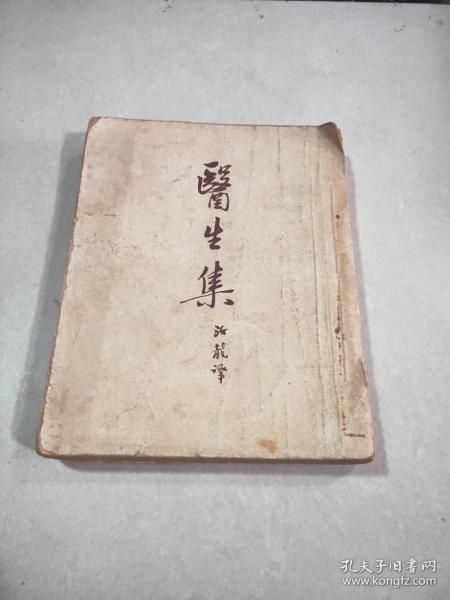 醫生集
汝龍譯
孔夫子旧书网
www.kongfz.com